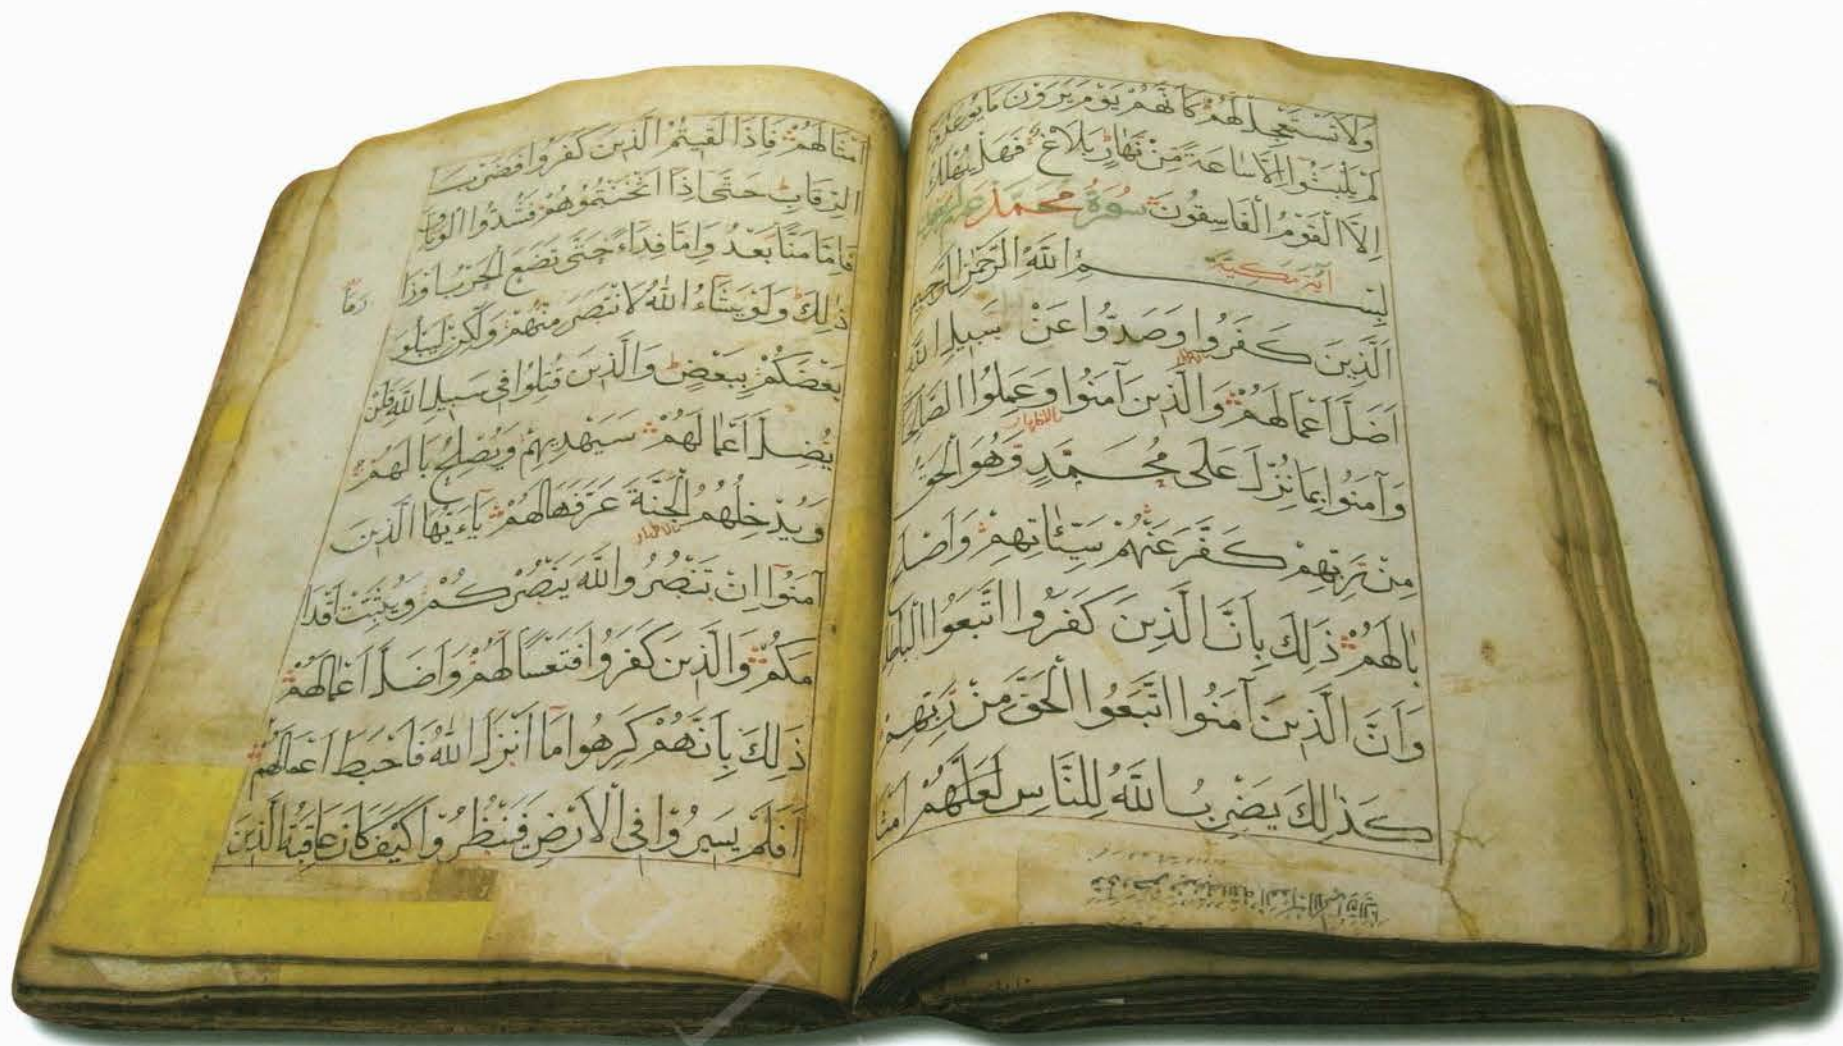 وَلَا تَسْتَعْجِلْ لَهُمْ كَأَنَّهُمْ يَوْمَ يَرَوْنَ مَا يُوعَدُونَ
لَمْ يَلْبَثُوا إِلَّا سَاعَةً مِنْ نَهَارٍ بَلَاغٌ فَهَلْ يُهْلَكُ
اِلَّا الْقَوْمُ الْفَاسِقُونَ سُورَةُ مُحَمَّدْ
آية مكية
بِسْمِ اللهِ الرَّحْمٰنِ الرَّحِيمِ
اَلَّذِينَ كَفَرُوا وَصَدُّوا عَنْ سَبِيلِ اللهِ
اَضَلَّ اَعْمَالَهُمْ وَالَّذِينَ آمَنُوا وَعَمِلُوا الصَّالِحَا
وَآمَنُوا بِمَا نُزِّلَ عَلَى مُحَمَّدٍ وَهُوَ الْحَقُّ
مِنْ رَبِّهِمْ كَفَّرَ عَنْهُمْ سَيِّئَاتِهِمْ وَاَصْلَحَ
بَالَهُمْ ذٰلِكَ بِاَنَّ الَّذِينَ كَفَرُوا اتَّبَعُوا الْبَاطِلَ
وَاَنَّ الَّذِينَ آمَنُوا اتَّبَعُوا الْحَقَّ مِنْ رَبِّهِمْ
كَذٰلِكَ يَضْرِبُ اللهُ لِلنَّاسِ لَعَلَّهُمْ اَمْثَا
اَمْثَالَهُمْ فَاِذَا لَقِيتُمُ الَّذِينَ كَفَرُوا فَضَرْبَ
الرِّقَابِ حَتّٰى اِذَا اَثْخَنْتُمُوهُمْ فَشُدُّوا الْوَثَاقَ
فَاِمَّا مَنًّا بَعْدُ وَاِمَّا فِدَاءً حَتّٰى تَضَعَ الْحَرْبُ اَوْزَا
ذٰلِكَ وَلَوْ يَشَاءُ اللهُ لَانْتَصَرَ مِنْهُمْ وَلٰكِنْ لِيَبْلُوَ
بَعْضَكُمْ بِبَعْضٍ وَالَّذِينَ قُتِلُوا فِي سَبِيلِ اللهِ فَلَنْ
يُضِلَّ اَعْمَالَهُمْ سَيَهْدِيهِمْ وَيُصْلِحُ بَالَهُمْ
وَيُدْخِلُهُمُ الْجَنَّةَ عَرَّفَهَا لَهُمْ يَاءَيُّهَا الَّذِينَ
آمَنُوا اِنْ تَنْصُرُوا اللهَ يَنْصُرْكُمْ وَيُثَبِّتْ اَقْدَا
مَكُمْ وَالَّذِينَ كَفَرُوا فَتَعْسًا لَهُمْ وَاَضَلَّ اَعْمَالَهُمْ
ذٰلِكَ بِاَنَّهُمْ كَرِهُوا مَا اَنْزَلَ اللهُ فَاَحْبَطَ اَعْمَالَهُمْ
اَفَلَمْ يَسِيرُوا فِي الْاَرْضِ فَيَنْظُرُوا كَيْفَ كَانَ عَاقِبَةُ الَّذِينَ